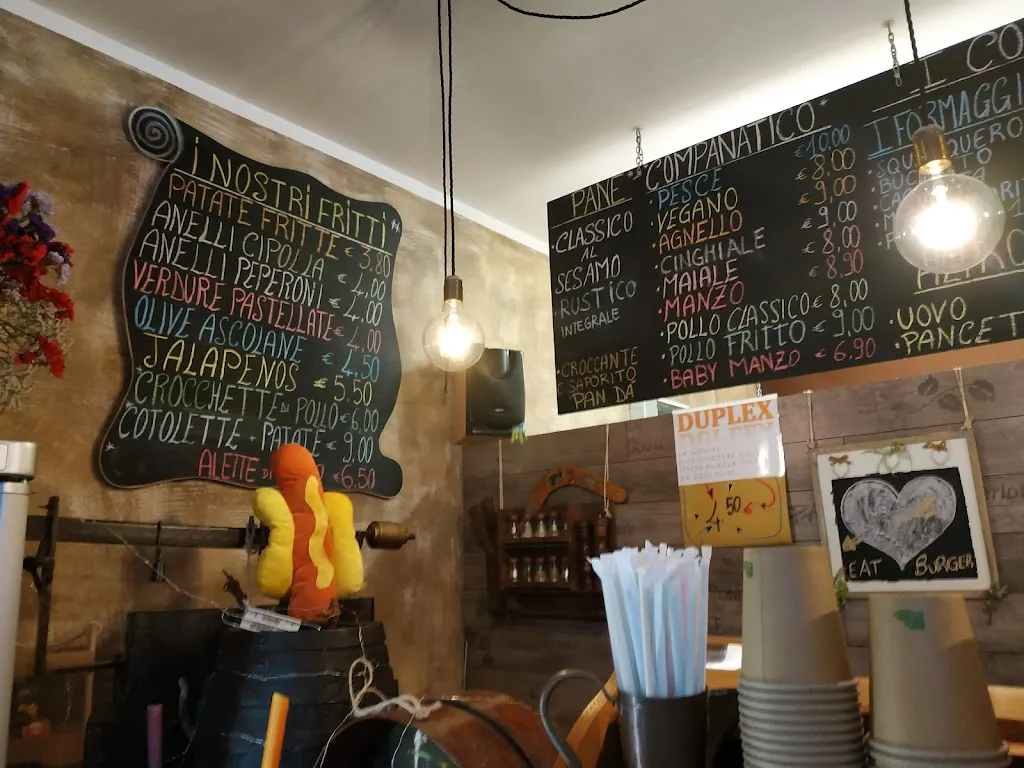 I NOSTRI FRITTI
PATATE FRITTE € 3,80
ANELLI CIPOLLA € 4,00
ANELLI PEPERONI € 4,00
VERDURE PASTELLATE € 4,00
OLIVE ASCOLANE € 4,50
JALAPENOS € 5.50
CROCCHETTE DI POLLO € 6,00
COTOLETTE + PATATE € 9,00
ALETTE DI € 6.50
PANE
• CLASSICO
AL
SESAMO
• RUSTICO
INTEGRALE
• CROCCANTE
E SAPORITO
PAN DA
COMPANATICO
• PESCE € 10.00
• VEGANO € 8,00
• AGNELLO € 9,00
• CINGHIALE € 9,00
• MAIALE € 8,00
• MANZO € 8,90
• POLLO CLASSICO € 8,00
• POLLO FRITTO € 9,00
• BABY MANZO € 6.90
IL CO
I FORMAGGI
• UOVO
• PANCET
DUPLEX
50
EAT BURGER